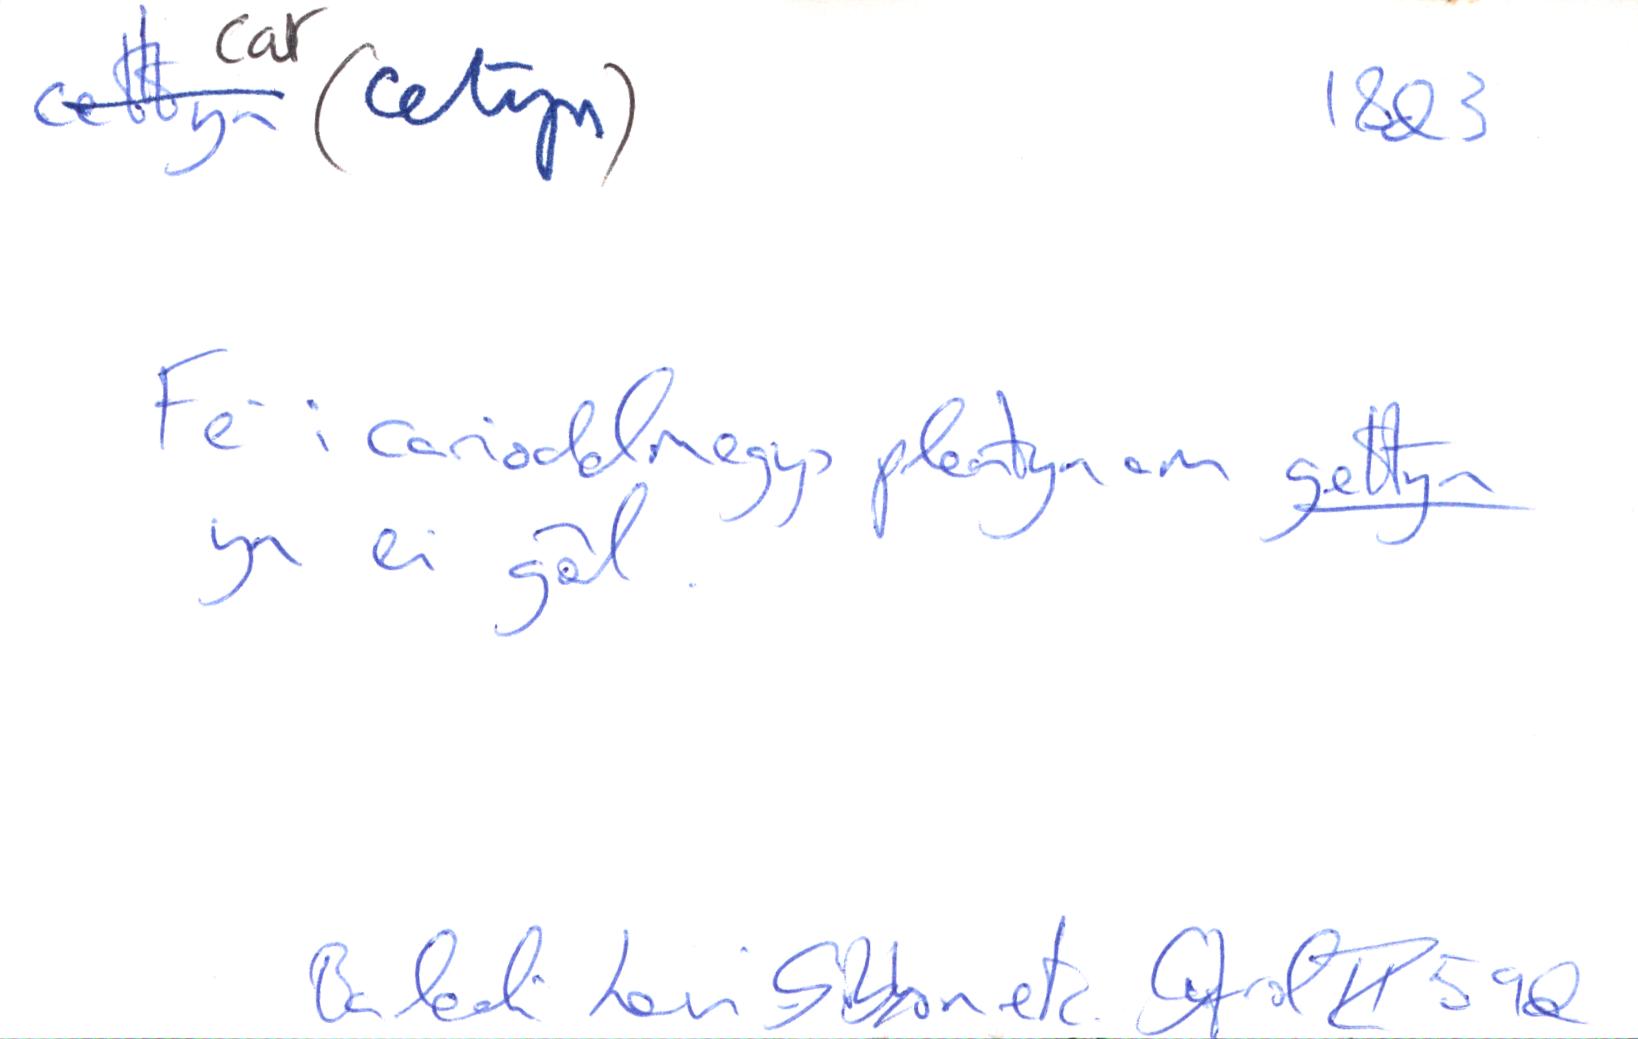 cettyn car (cetyn) 1823
Fe i cariodd megys plentyn am gettyn
yn ei gôl.
Baledi Levi Gibbon etc. Cyfrol II 592